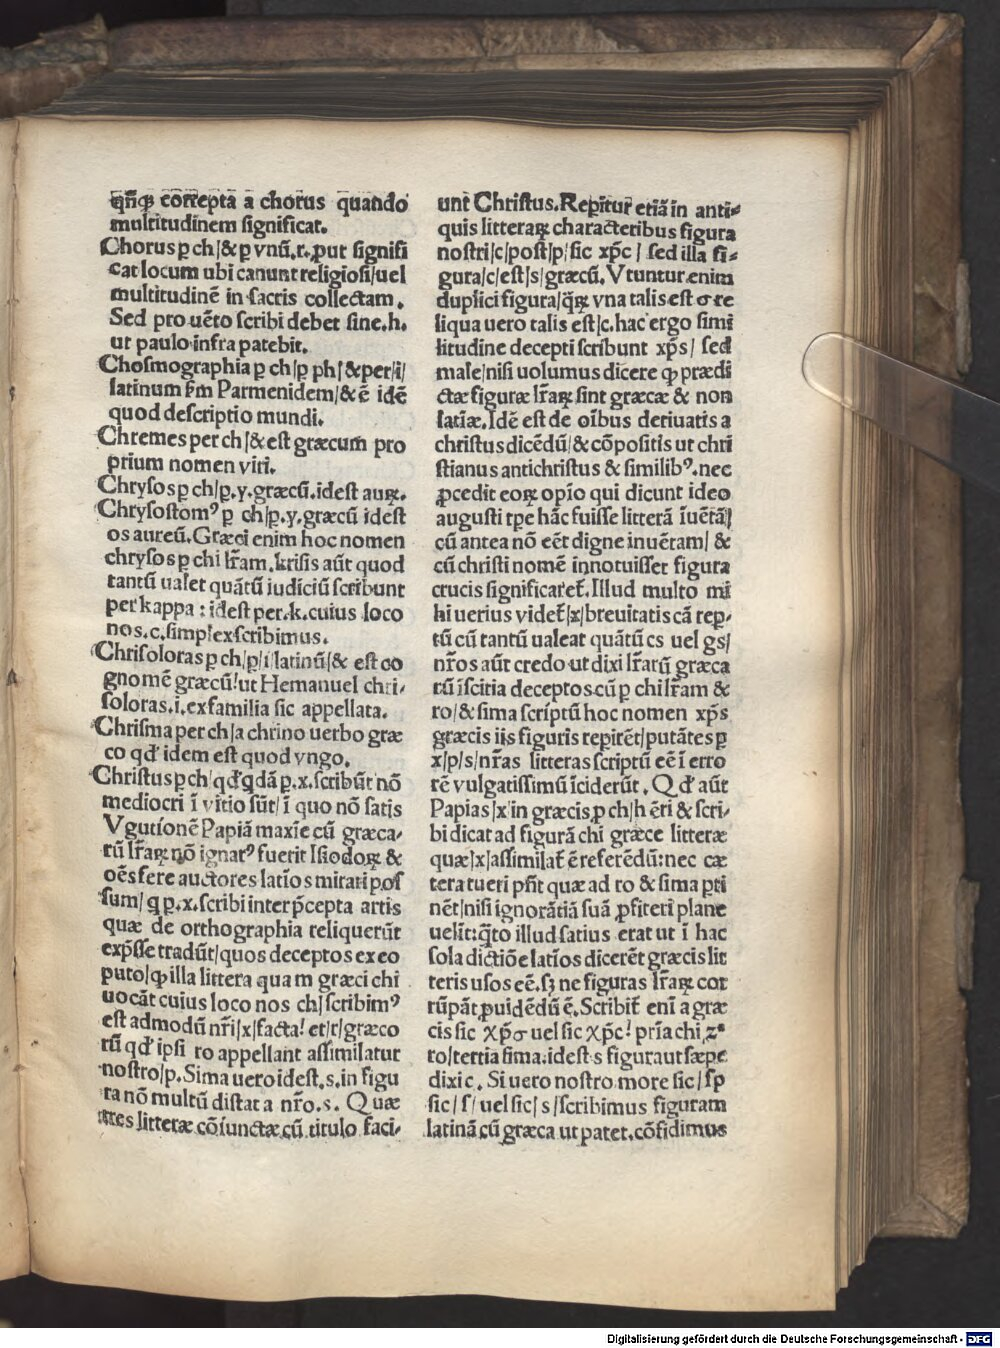 qñqꝫ correpta a chorus quando
multitudinem significat.
Chorus p̱ ch/& p̱ vnū.r.ꝓut signifi
cat locum ubi canunt religiosi/uel
multitudinē in sacris collectam.
Sed pro uēto scribi debet sine.h.
ut paulo infra patebit.
Chosmographia p̱ ch/p̱ ph/& per/i/
latinum ẜm Parmenidem/& ē idē
quod descriptio mundi.
Chremes per ch/& est græcum pro
prium nomen viri.
Chrysos p̱ ch/p̱.y.græcū.idest auꝝ.
Chrysostomꝰ p̱ ch/p̱.y.græcū idest
os aureū. Græci enim hoc nomen
chrysos p̱ chi lr̄am.krisis aūt quod
tantū ualet quātū iudiciū scribunt
per kappa : idest per.k.cuius loco
nos.c.simplex scribimus.
Chrisoloras p̱ ch/p̱/i/latinū/& est co
gnomē græcū!ut Hemanuel chri/
soloras.i.ex familia sic appellata.
Chrisma per ch/a chrino uerbo græ
co qd' idem est quod vngo.
Christus p̱ ch/qd' qdā p̱.x.scribūt nō
mediocri ī vitio sūt/ī quo nō satis
Vgutionē Papiā maxīe cū græca/
rū lr̄aꝝ nō ignarꝰ fuerit Isiodoꝝ &
oēs fere auctores latīos mirari pos
sum/ q p̱.x.scribi inter p̄cepta artis
quæ de orthographia reliquerūt
exp̄sse tradūt/quos deceptos ex eo
puto/ꝙ illa littera quam græci chi
uocāt cuius loco nos ch/scribimꝰ
est admodū nr̄i/x/facta! et/r/græco
rū qd' ipsi ro appellant assimilatur
nostro/p. Sima uero idest.s.in figu
ra nō multū distat a nr̄o.s. Quæ
tres litteræ cōiunctæ cū titulo faci/
unt Christus. Reperitur̄ etiā in anti=
quis litteraꝝ characteribus figura
nostri/c/post/p/sic xp̄c / sed illa fi=
gura/c/est/s/græcū. Vtuntur enim
duplici figura/q̄ꝝ vna talis est σ re
liqua uero talis est/c.hac ergo simi
litudine decepti scribunt xp̄s/ sed
male/nisi uolumus dicere ꝙ prædi
ctæ figuræ lr̄aꝝ sint græcæ & non
latīæ. Idē est de oībus deriuatis a
christus dicēdū/& cōpositis ut chri
stianus antichristus & similibꝰ.nec
ꝓcedit eoꝝ opīo qui dicunt ideo
augusti tp̄e hāc fuisse litterā īuētā/
cū antea nō eēt digne inuētam/ &
cū christi nomē innotuisset figura
crucis significaret̄. Illud multo mi
hi uerius videt̄/x/breuitatis cā rep̱/
tū cū tantū ualeat quātū cs uel gs/
nr̄os aūt credo ut dixi lr̄arū græca
rū īscitia deceptos cū p̱ chi lr̄am &
ro/& sima scriptū hoc nomen xp̄s
græcis iis figuris repirēt/putātes p̱
x/p/s/nr̄as litteras scriptū eē ī erro
rē vulgatissimū īciderūt. Qd' aūt
Papias/x/in græcis ꝓ ch/h̄ eri & scri/
bi dicat ad figurā chi græce litteræ
quæ/x/assimilat̄ ē referēdū:nec cæ
tera tueri pn̄t quæ ad ro & sima p̱ti
nēt/nisi ignorātiā suā ꝓfiteri plane
uelit:q̄to illud satius erat ut ī hac
sola dictiōe latīos dicerēt græcis lit
teris usos eē.sꝫ ne figuras lr̄aꝝ cor
rūpāt ꝓuidēdū ē. Scribit̄ enī a græ
cis sic χp̄σ uel sic χp̄c! prīa chi,zᵃ
ro/tertia sima.idest s figura ut sæpe
dixi c. Si uero nostro more sic/ sp
sic/ s/ uel sic/ s /scribimus figuram
latinā cū græca ut patet.cōfidimus
Digitalisierung gefördert durch die Deutsche Forschungsgemeinschaft - DFG